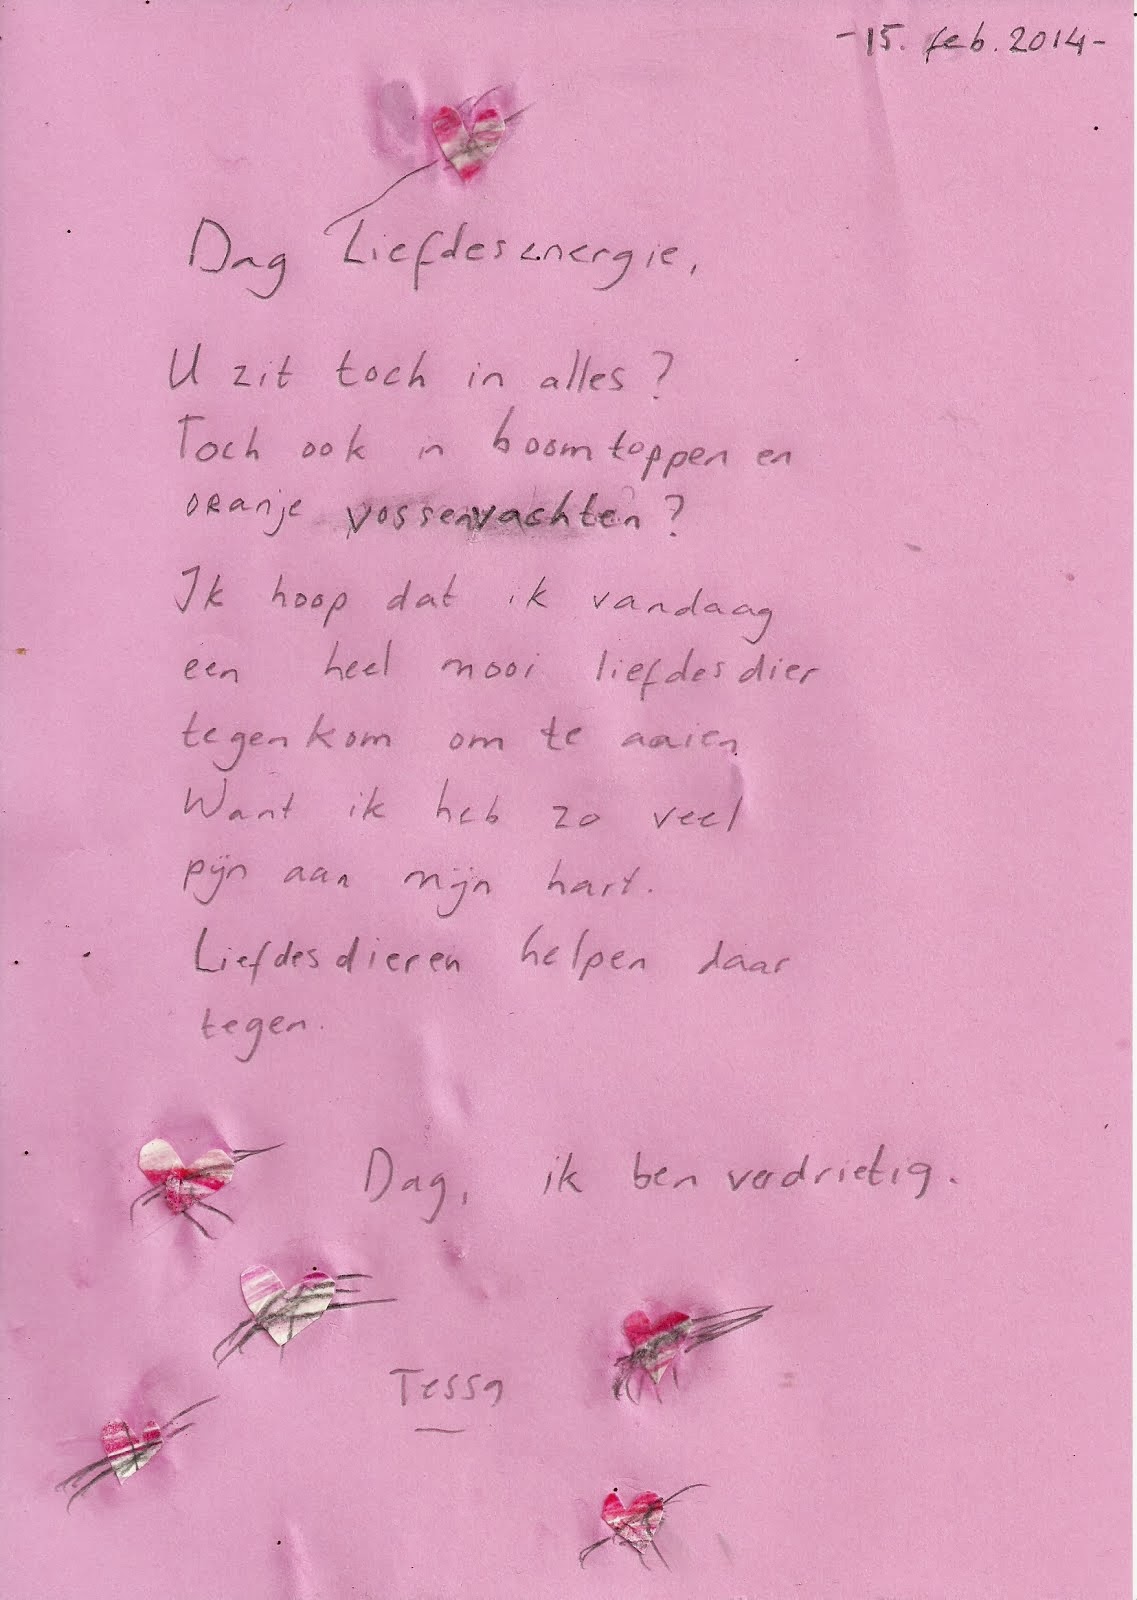 -15. feb. 2014-
Dag Liefdesenergie,
U zit toch in alles?
Toch ook in boomtoppen en
oranje vossenvachten?
Ik hoop dat ik vandaag
een heel mooi liefdesdier
tegenkom om te aaien
Want ik heb zo veel
pijn aan mijn hart.
Liefdesdieren helpen daar
tegen.
Dag, ik ben verdrietig.
Tessa